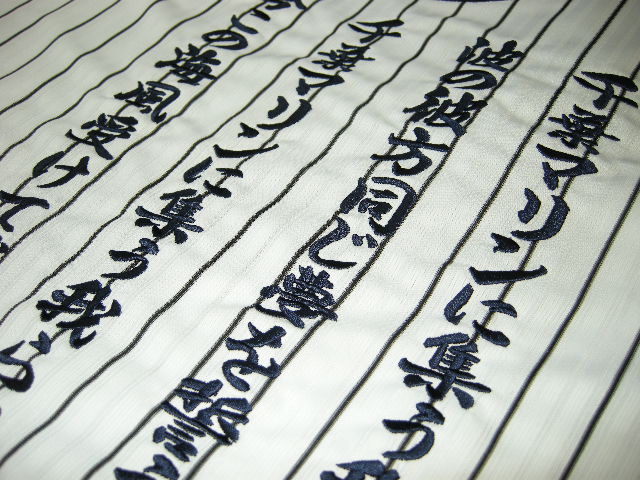 千葉マリンに集う我
波の彼方同じ夢を誓
千葉マリンに集う我ら
この海風受けて